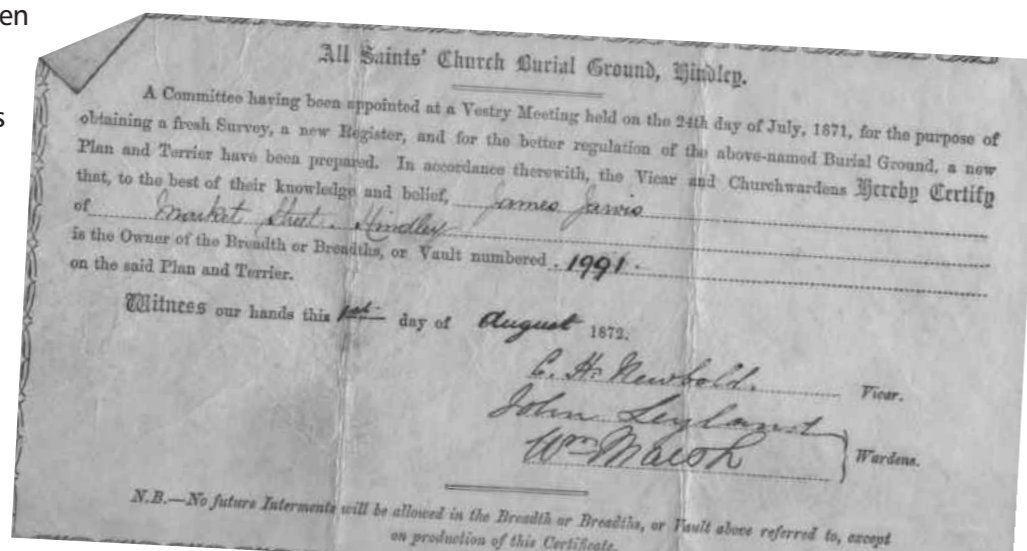 en
s
All Saints' Church Burial Ground, Hindley.
A Committee having been appointed at a Vestry Meeting held on the 24th day of July, 1871, for the purpose of
obtaining a fresh Survey, a new Register, and for the better regulation of the above-named Burial Ground, a new
Plan and Terrier have been prepared. In accordance therewith, the Vicar and Churchwardens Hereby Certify
that, to the best of their knowledge and belief, James Jarvis
of Market Street. Hindley
is the Owner of the Breadth or Breadths, or Vault numbered 1991.
on the said Plan and Terrier.
Witness our hands this 1st day of August 1872.
C. H. Newbold. Vicar.
John Leyland
Wm Marsh Wardens.
N.B.—No future Interments will be allowed in the Breadth or Breadths, or Vault above referred to, except
on production of this Certificate.